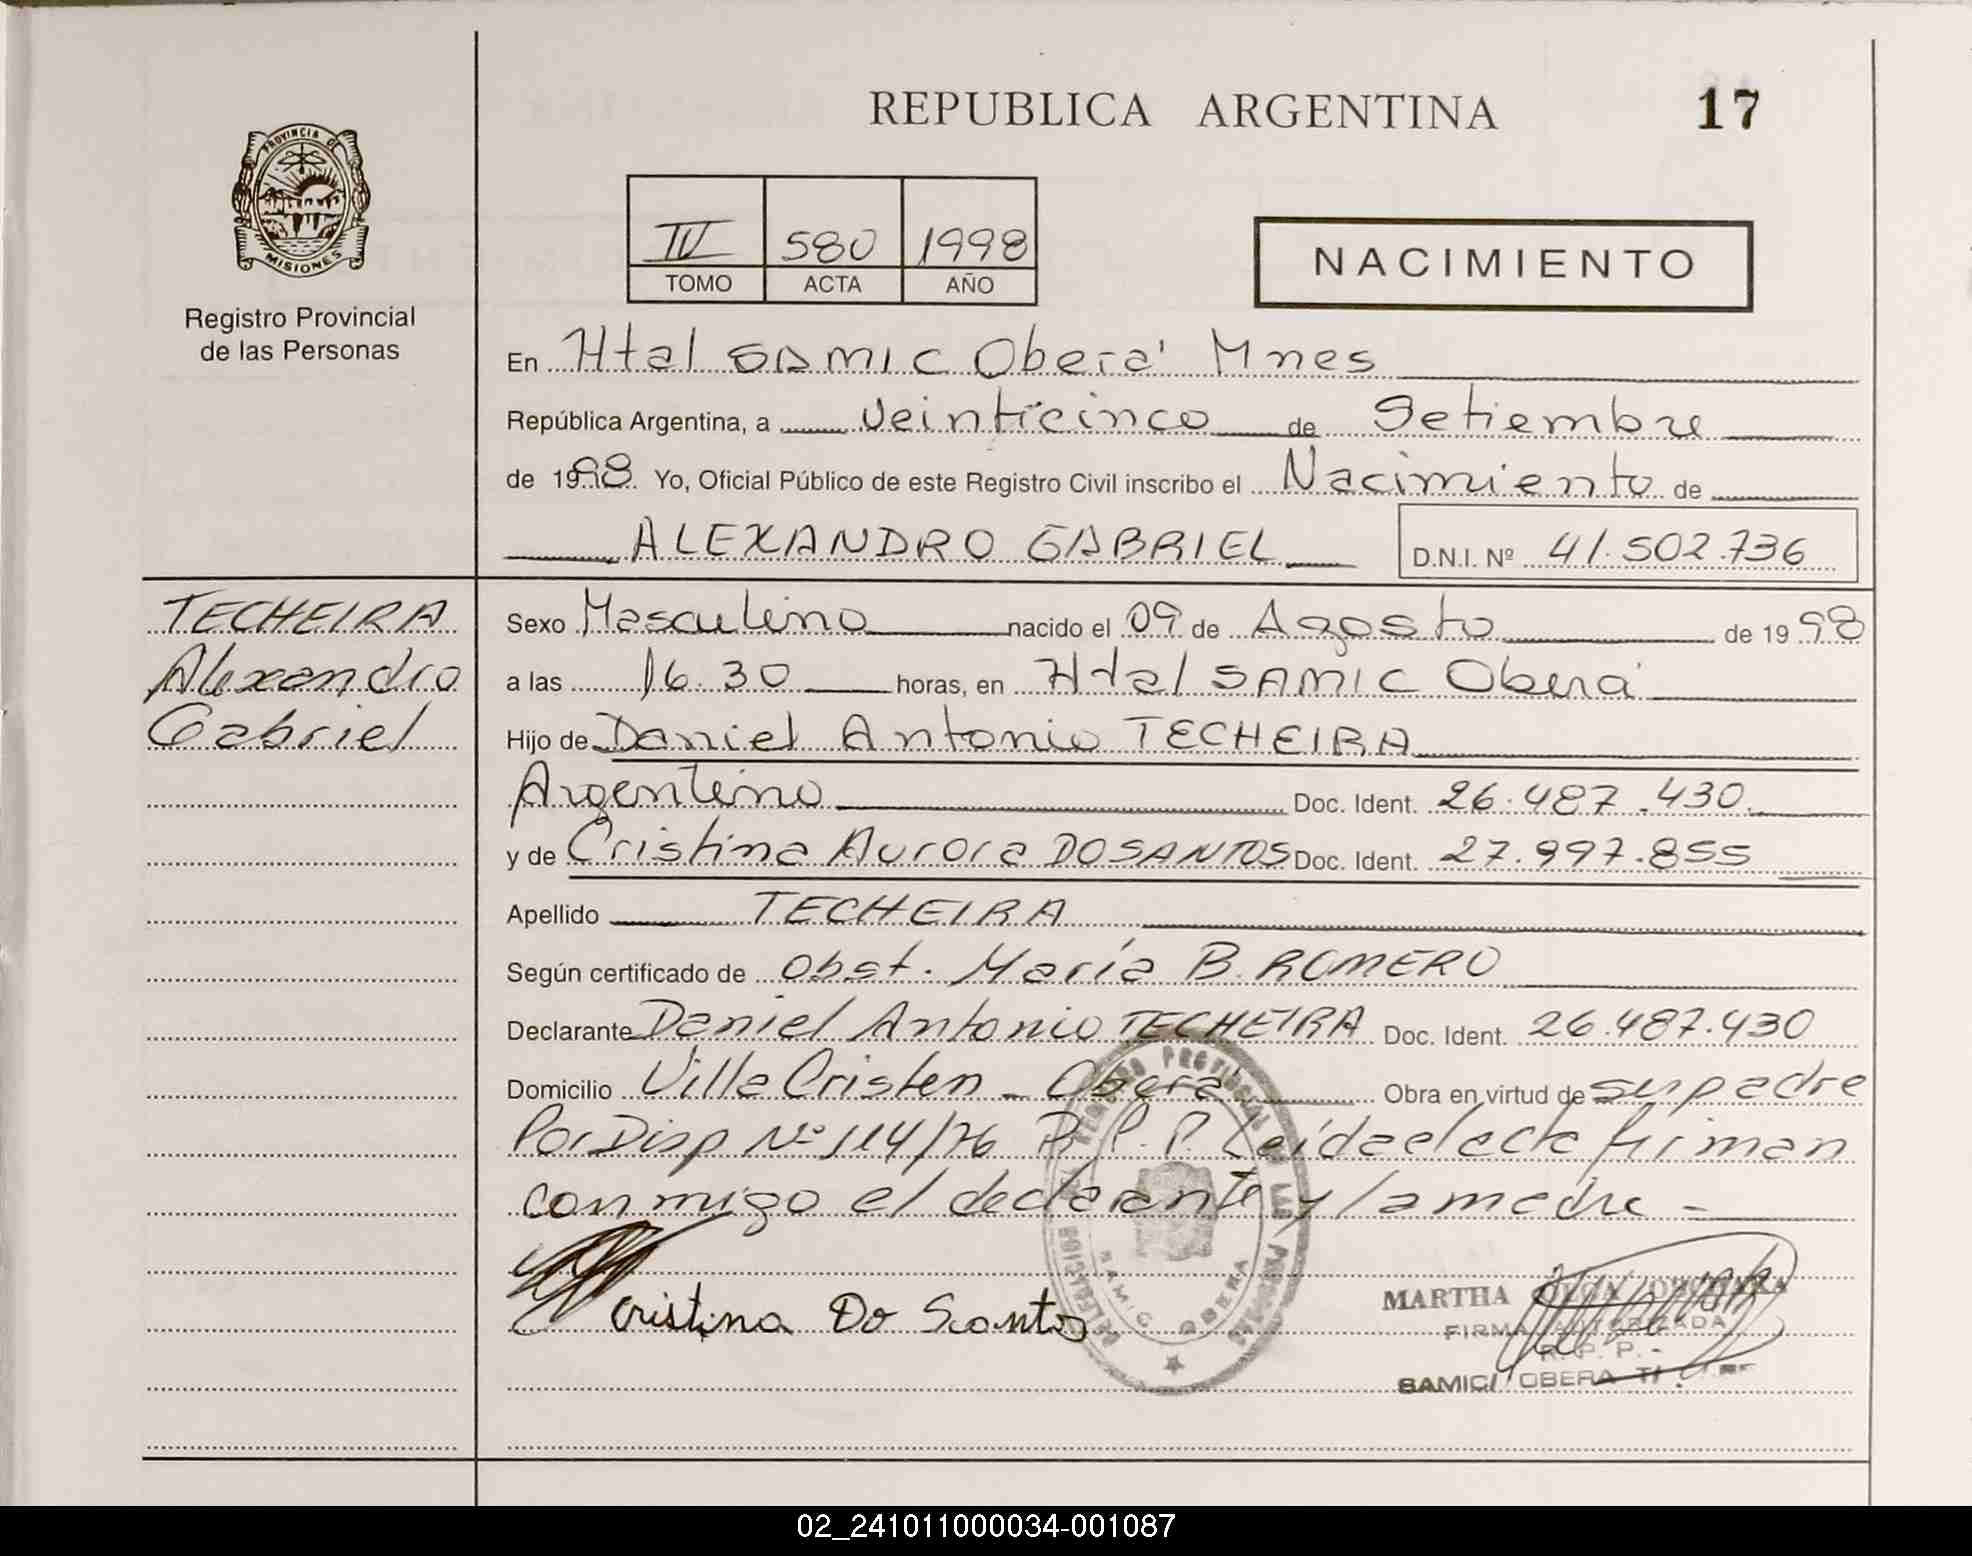 REPUBLICA ARGENTINA
17
PROVINCIA DE
MISIONES
Registro Provincial
de las Personas
IV 580 1998
TOMO ACTA AÑO
NACIMIENTO
En Htal SAMIC Oberá Mnes
República Argentina, a Veinticinco de Setiembre
de 1998. Yo, Oficial Público de este Registro Civil inscribo el Nacimiento de
ALEXANDRO GABRIEL D.N.I. Nº 41.502.736
TECHEIRA
Alexandro
Gabriel
Sexo Masculino nacido el 09 de Agosto de 1998
a las 16.30 horas, en Htal SAMIC Oberá
Hijo de Daniel Antonio TECHEIRA
Argentino Doc. Ident. 26.487.430.
y de Cristina Aurora DOSANTOS Doc. Ident. 27.997.855
Apellido TECHEIRA
Según certificado de Obst. María B. ROMERO
Declarante Daniel Antonio TECHEIRA Doc. Ident. 26.487.430
Domicilio Villa Cristen - Oberá Obra en virtud de su padre
Por Disp Nº 114/76 R.P.P. Leída el acta firman
conmigo el declarante y la madre -
Cristina Do Santos
REGISTRO PROVINCIAL DE LAS PERSONAS
SAMIC OBERA
MARTHA
FIRMA AUTORIZADA
R. P. P. -
SAMIC OBERA
02_241011000034-001087